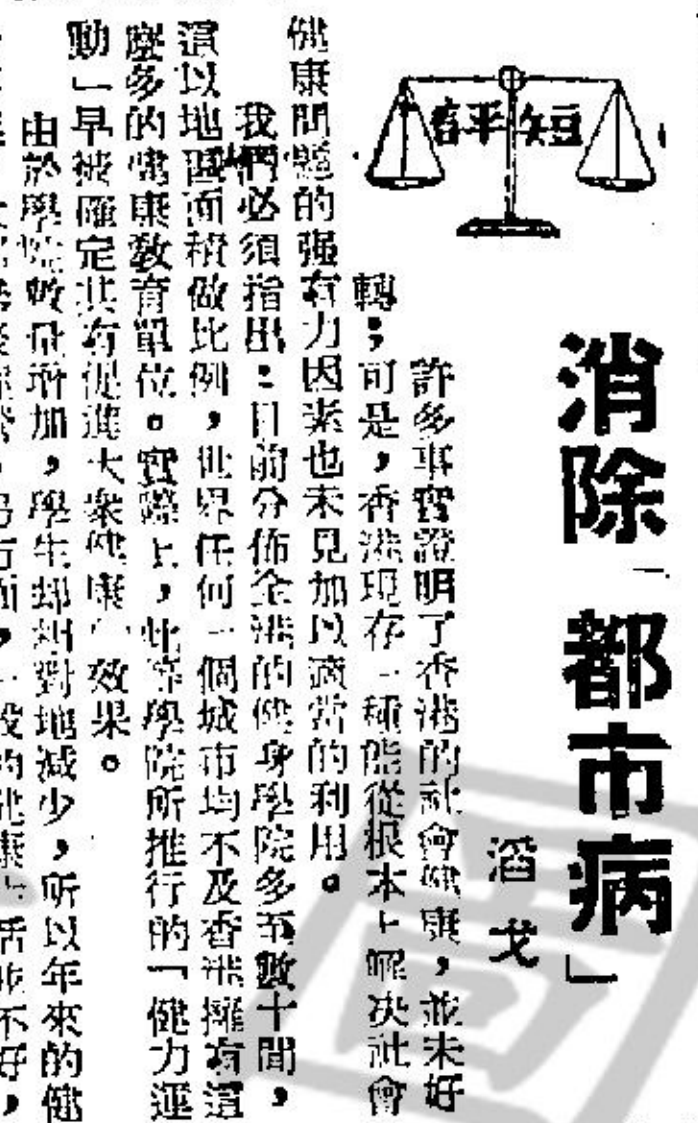 短平
消除「都市病」
滔戈
許多事實證明了香港的社會健康，並未好
轉；可是，香港現存一種能從根本上解決社會
健康問題的强有力因素也未見加以適當的利用。
我們必須指出：目前分佈全港的健身學院多至數十間，
這以地區面積做比例，世界任何一個城市均不及香港擁有這
麼多的健康敎育單位。實際上，此等學院所推行的「健力運
動」早被確定其有促進大衆健康 效果。
由於學院數量增加，學生却相對地減少，所以年來的健
另方面，一般的健康生活並不好，